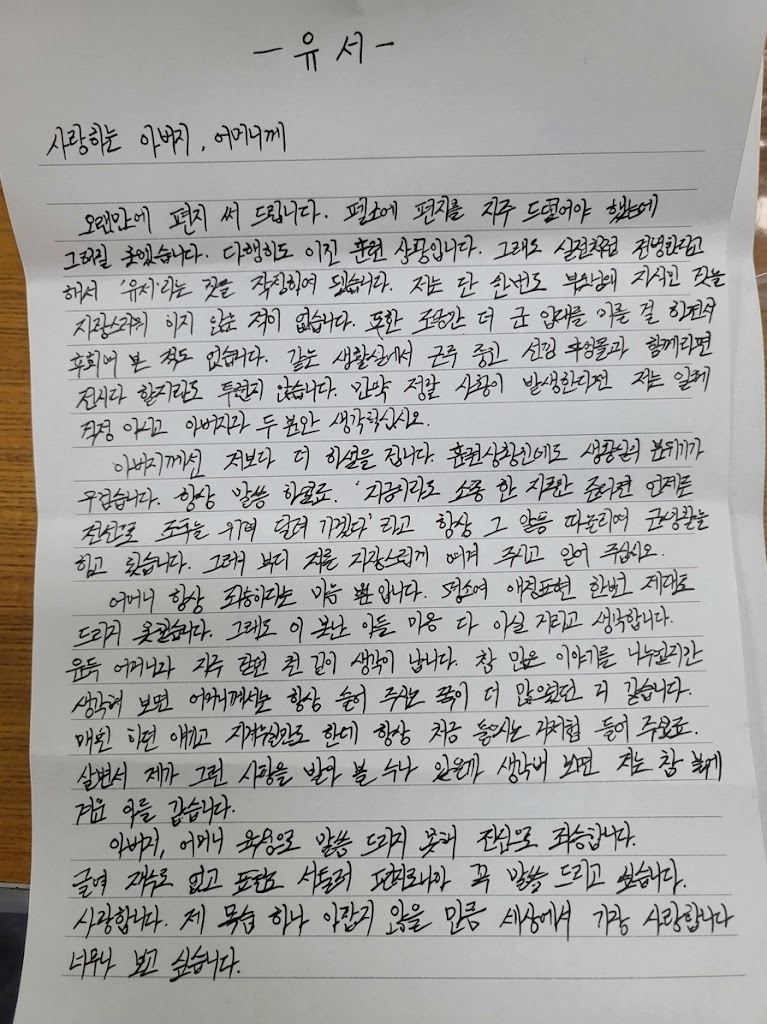 - 유서 -
사랑하는 아버지, 어머니께
오랜만에 편지 써 드립니다. 평소에 편지를 자주 드렸어야 했는데
그러질 못했습니다. 다행히도 이건 훈련 상황입니다. 그래도 실전처럼
해서 '유서'라는 것을 작성하여 됩니다. 저는 단 한번도 부모님의 자식인 것을
자랑스러워 하지 않은 적이 없습니다. 또한 조금만 더 군 입대를 미룰 걸 하면서
후회해 본 적도 없습니다. 같은 생활실에서 근무 중인 선임 후임들과 함께라면
전시라 할지라도 두렵지 않습니다. 만약 정말 상황이 발생한다면 저는 일체
걱정 마시고 아버지와 두 분만 생각하십시오.
아버지께선 저보다 더 하셨을 겁니다. 훈련상황인데도 생활실의 분위기가
무겁습니다. 항상 말씀 하셨죠. '지금이라도 소총 한 자루만 준다면 언제든
전선으로 조국을 위해 달려 가겠다' 라고 항상 그 말을 떠올리며 군생활을
하고 있습니다. 그러니 부디 저를 자랑스럽게 여겨 주시고 믿어 주십시오.
어머니 항상 죄송하다는 마음 뿐입니다. 평소에 애정표현 한번 제대로
드리지 못했습니다. 그래도 이 못난 아들 마음 다 아실 거라고 생각합니다.
문득 어머니와 자주 걷던 길이 생각이 납니다. 참 많은 이야기를 나누었지만
생각해 보면 어머니께서는 항상 들어 주시는 쪽이 더 많으셨던 거 같습니다.
매번 하던 얘기고 지겨우실만도 한데 항상 처음 들으시는 것처럼 들어 주셨죠.
살면서 제가 그런 사랑을 받아 볼 수나 있을까 생각해 보면 저는 참 복에
겨운 아들 같습니다.
아버지, 어머니 육성으로 말씀 드리지 못해 진심으로 죄송합니다.
글에 재주도 없고 표현도 서툴러 편지로나마 꼭 말씀 드리고 싶습니다.
사랑합니다. 제 목숨 하나 아깝지 않을 만큼 세상에서 가장 사랑합니다
너무나 보고 싶습니다.